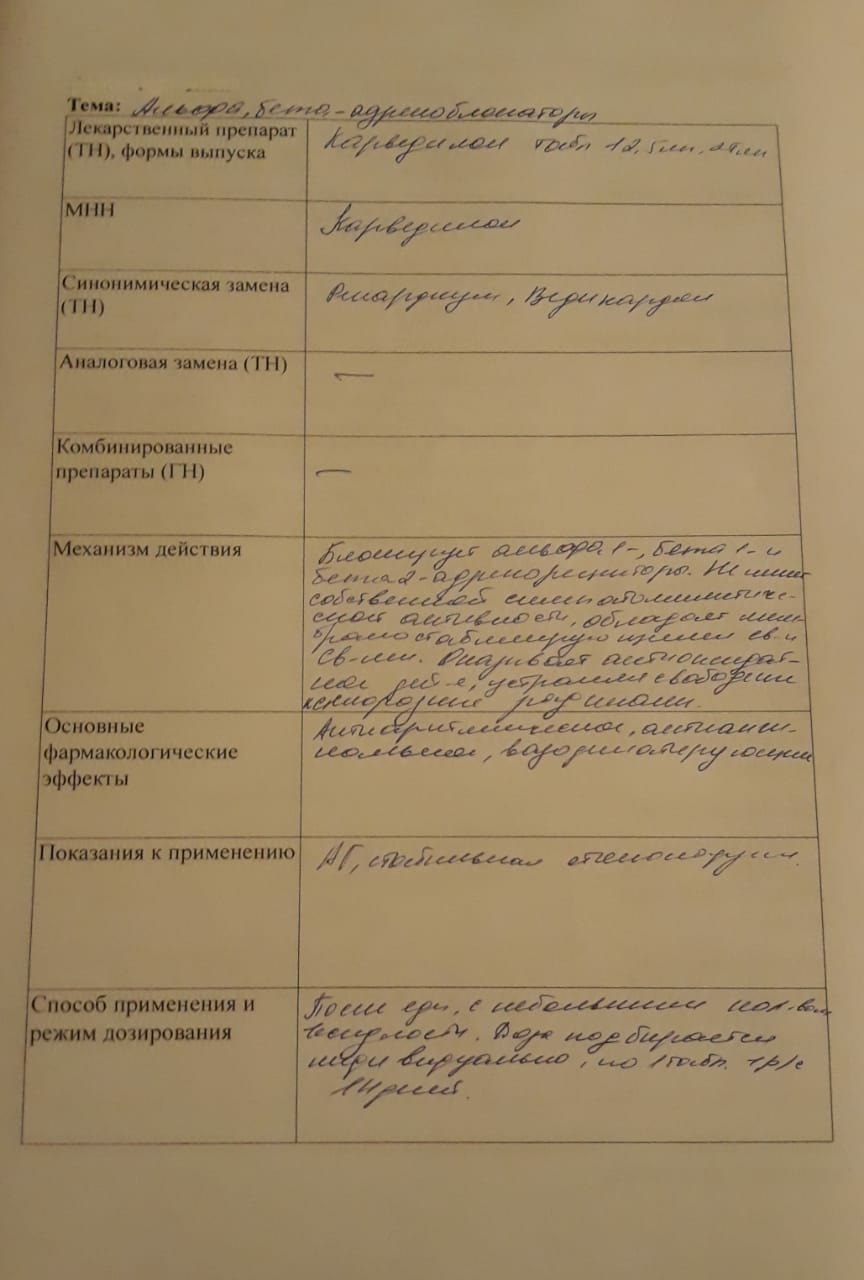 Тема: Альфа, бета-адреноблокаторы
Лекарственный препарат
(ТН), формы выпуска
Карведилол табл 12,5мг,
МНН
Карведилол
Синонимическая замена
(ТН)
Акридиол, Ведикардол
Аналоговая замена (ТН)
—
Комбинированные
препараты (ТН)
—
Механизм действия
Блокирует альфа1-, бета1- и
бета2-адренорецепторы. Не имеет
собственной симпатомиметичес-
кой активности, обладает мем-
браностабилизирующими
св-ми. Оказывает антиоксидант-
ное дей-е, устраняя свободные
кислородные радикалы.
Основные
фармакологические
эффекты
Антиаритмическое, антианги-
нальное, вазодилатирующее
Показания к применению
АГ, стабильная стенокардия.
Способ применения и
режим дозирования
После еды, с небольшим кол-вом
жидкости. Доза подбирается
индивидуально, по 1 табл. 1р/с
14 дней.